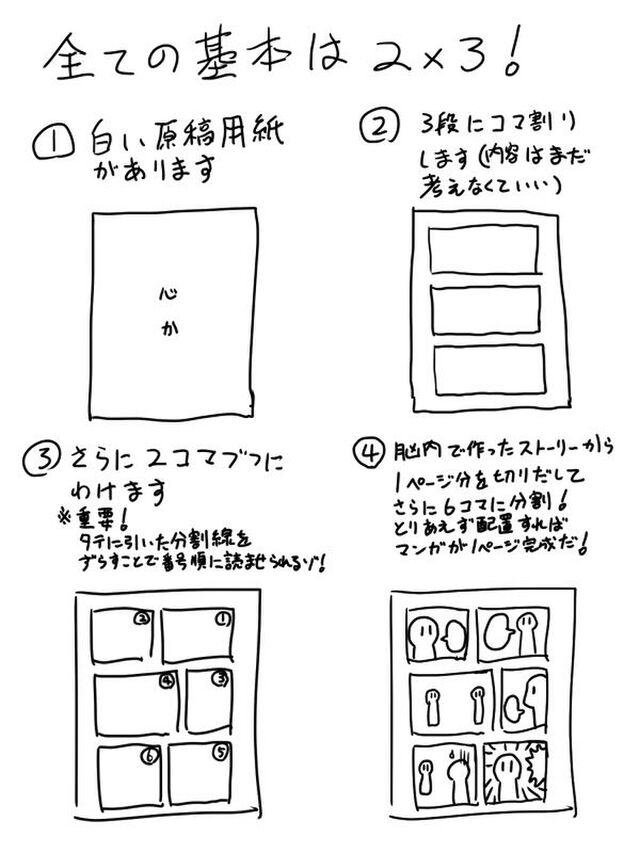 全ての基本は2×3!
① 白い原稿用紙
があります
心
か
② 3段にコマ割り
します(内容はまだ
考えなくていい)
③ さらに2コマブつに
わけます
※重要!
タテに引いた分割線を
ずらすことで番号順に読ませられるゾ!
②
①
④
③
⑥
⑤
④ 脳内で作ったストーリーから
1ページ分を切りだして
さらに6コマに分割!
とりあえず配置すれば
マンガが1ページ完成だ!